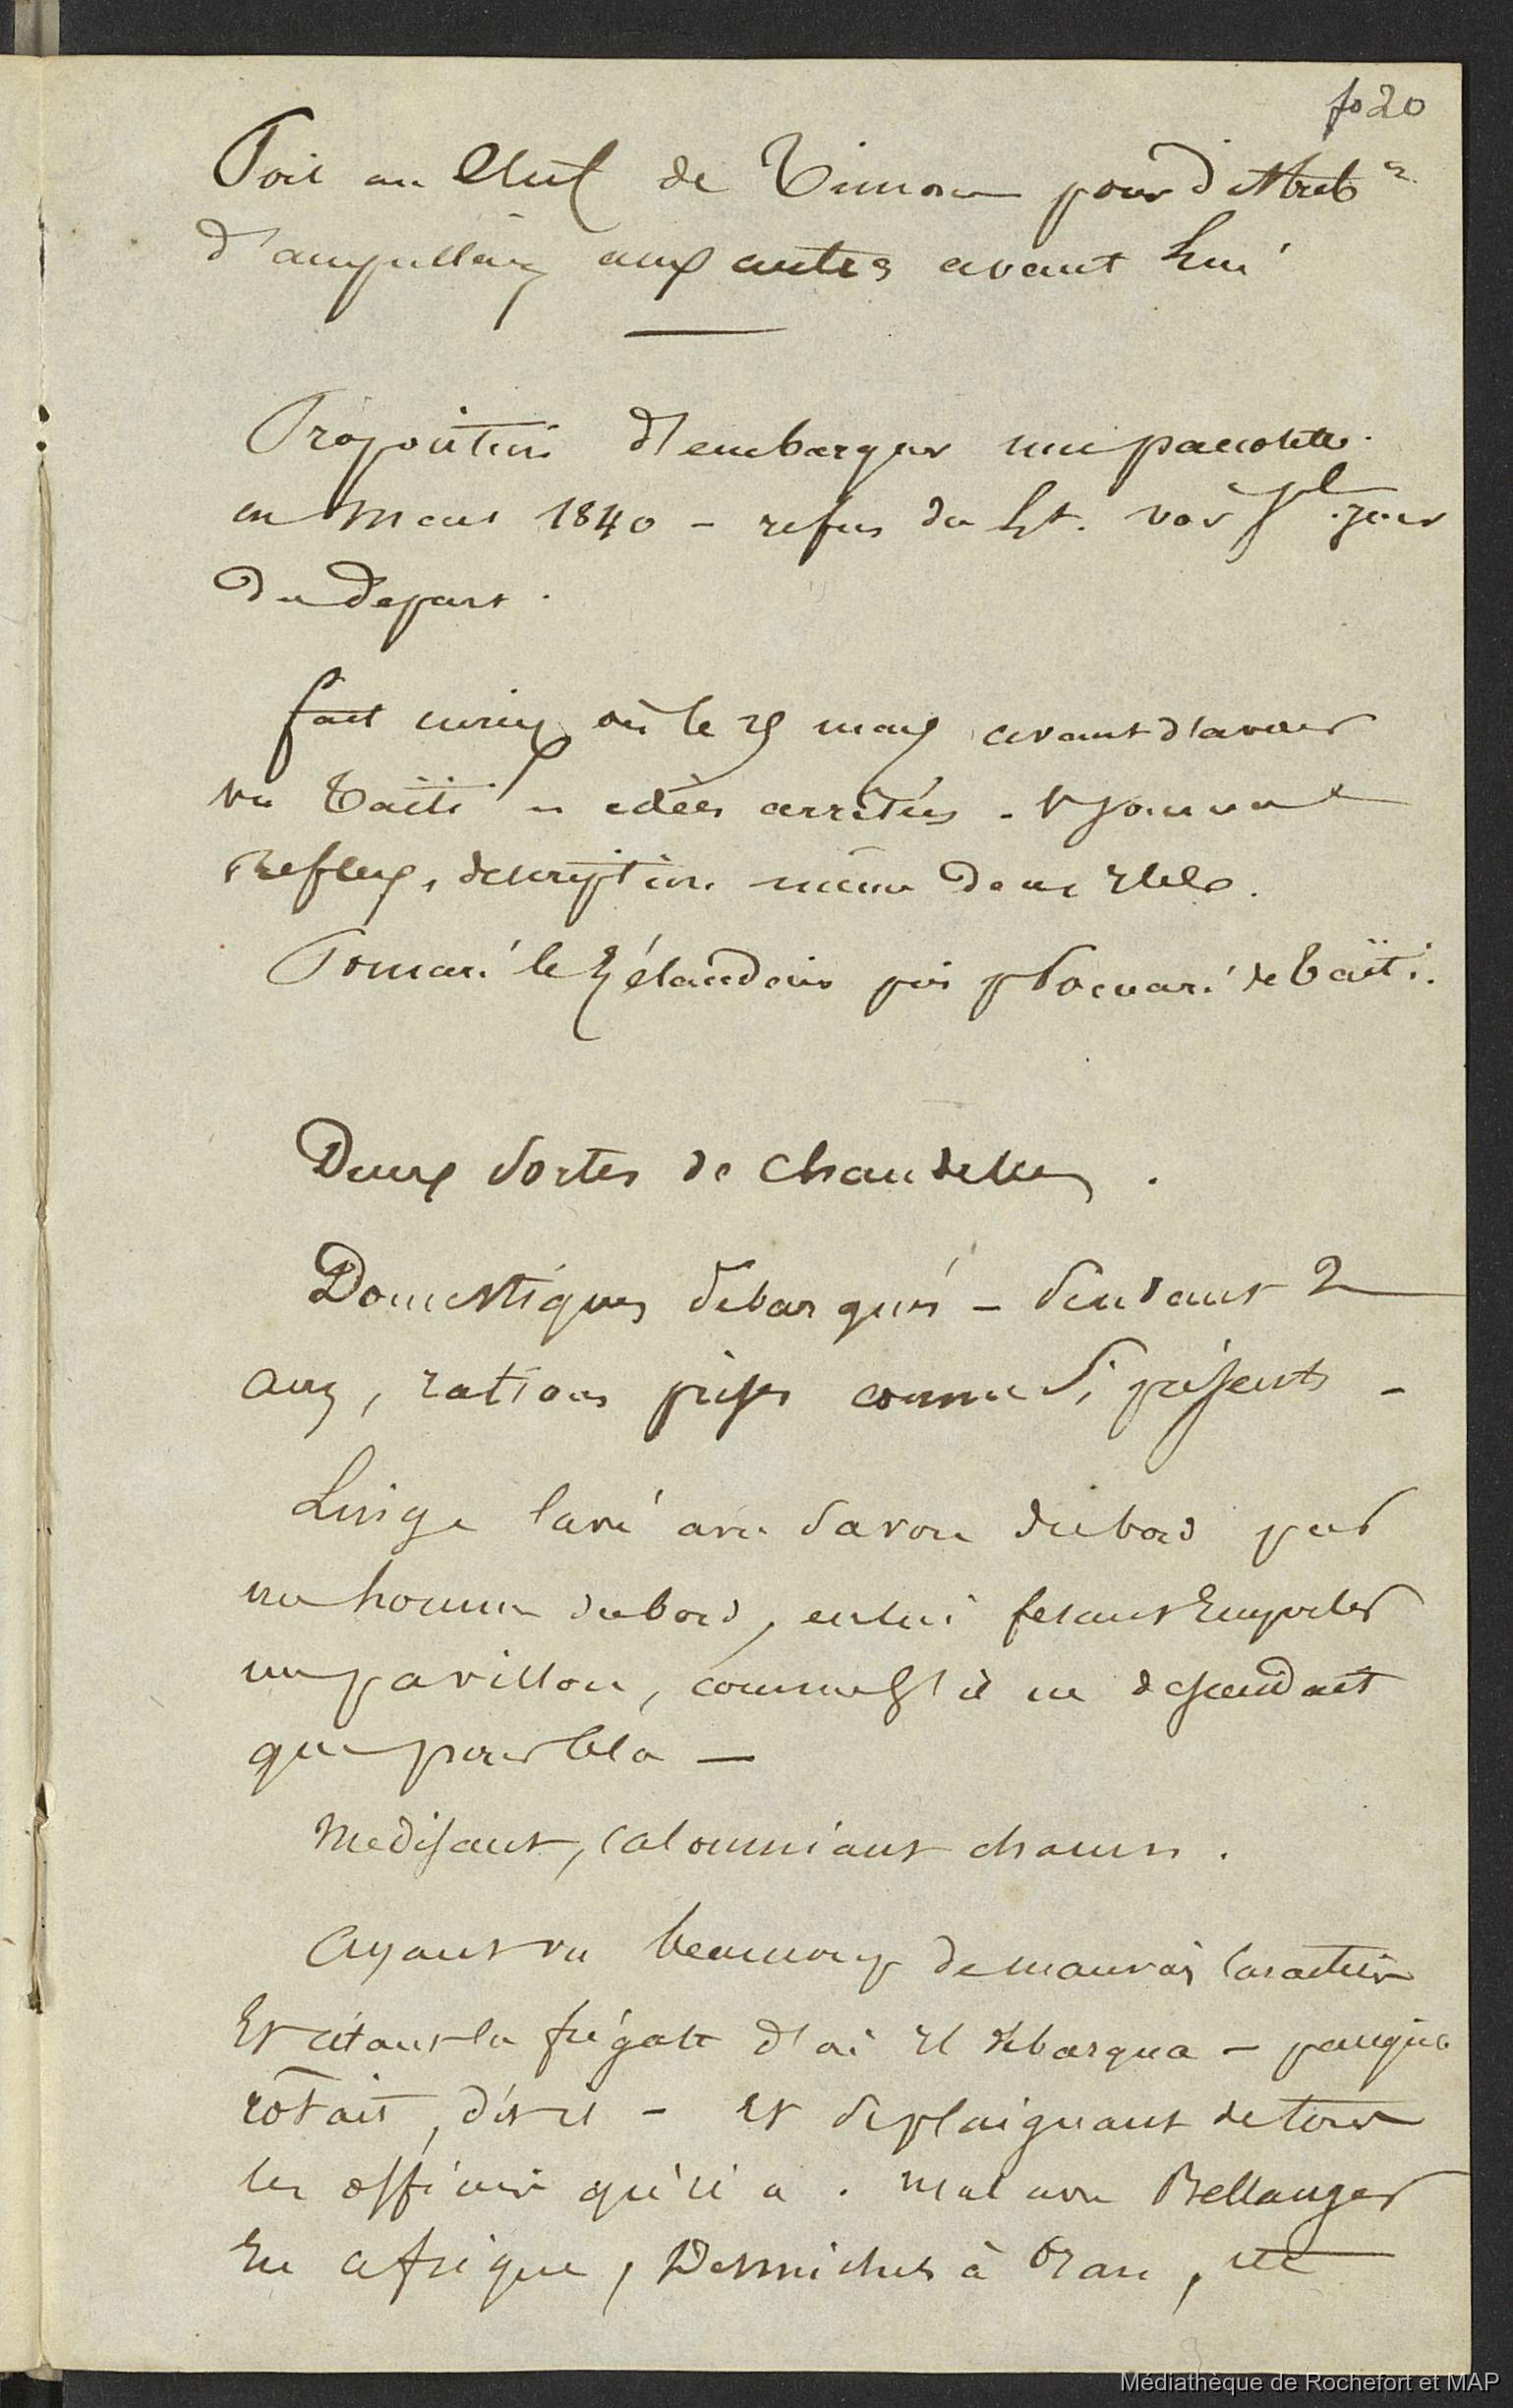 fo 20
au chef de Timor pour distrib
d'ampullaires aux autres avant lui
Proposition d'embarquer une pacotille
en mars 1840 - refus du Lt. voir jour
du départ.
fait curieux où le 29 mars avant d'avoir
vu Taïti idées arrêtées -
Reflex, description même
Pomaré le Zélandais puis Pomaré de Taïti.
Deux sortes de chandelles.
Domestiques débarqués - pendant 2
ans, rations prises comme si présents -
Linge lavé avec savon du bord par
un homme du bord, en lui fesant emporter
un pavillon, comme s'il ne descendait
que pour cela -
Medisant, calomniant chacun.
Ayant vu beaucoup de mauvais caractères
Et citant la frégate d'où il débarqua -
était, dit-il - Et se plaignant de tous
les officiers qu'il a. mal avec Bellanger
En afrique, Desmichels à Oran, etc
Médiathèque de Rochefort et MAP